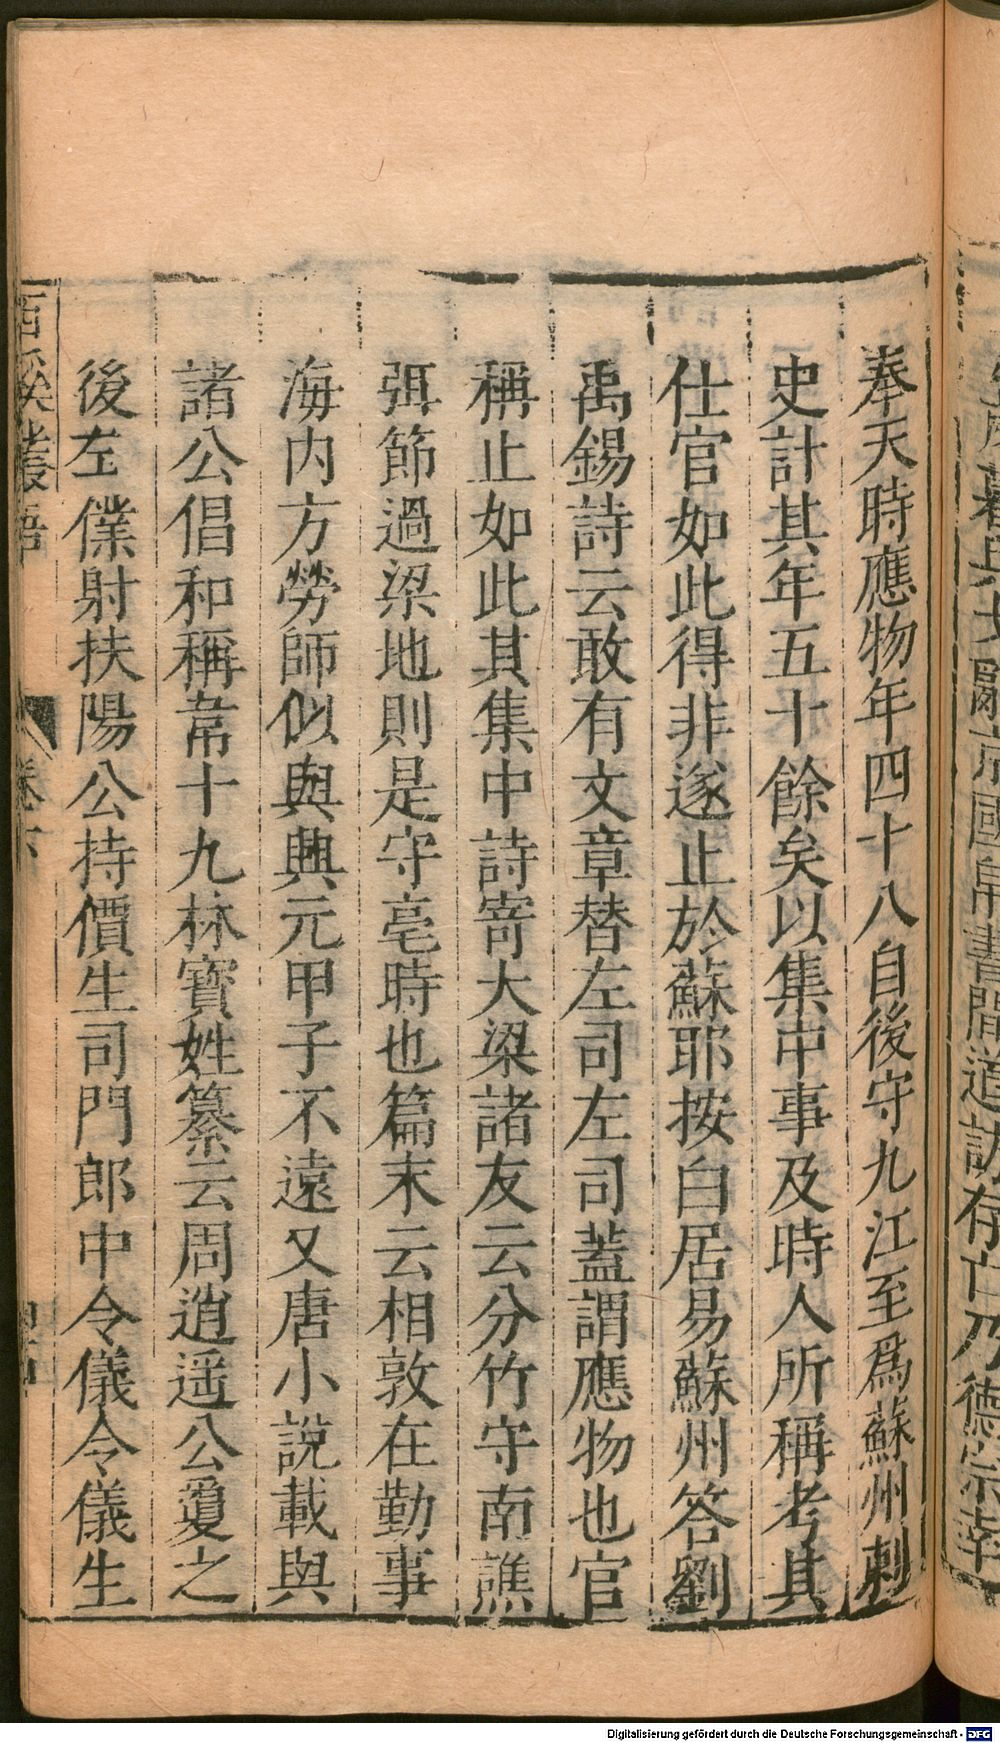 奉天時應物年四十八自後守九江至爲蘇州刺
史計其年五十餘矣以集中事及時人所稱考其
仕官如此得非遂止於蘇耶按白居易蘇州答劉
禹錫詩云敢有文章替左司左司蓋謂應物也官
稱止如此其集中詩寄大梁諸友云分竹守南譙
弭節過梁地則是守亳時也篇末云相敦在勤事
海内方勞師似與興元甲子不遠又唐小說載與
諸公倡和稱韋十九林寶姓纂云周逍遥公夐之
後左僕射扶陽公持價生司門郎中令儀令儀生
西溪叢語 卷下
國帛書間道訪存亡乃德宗幸
Digitalisierung gefördert durch die Deutsche Forschungsgemeinschaft - DFG